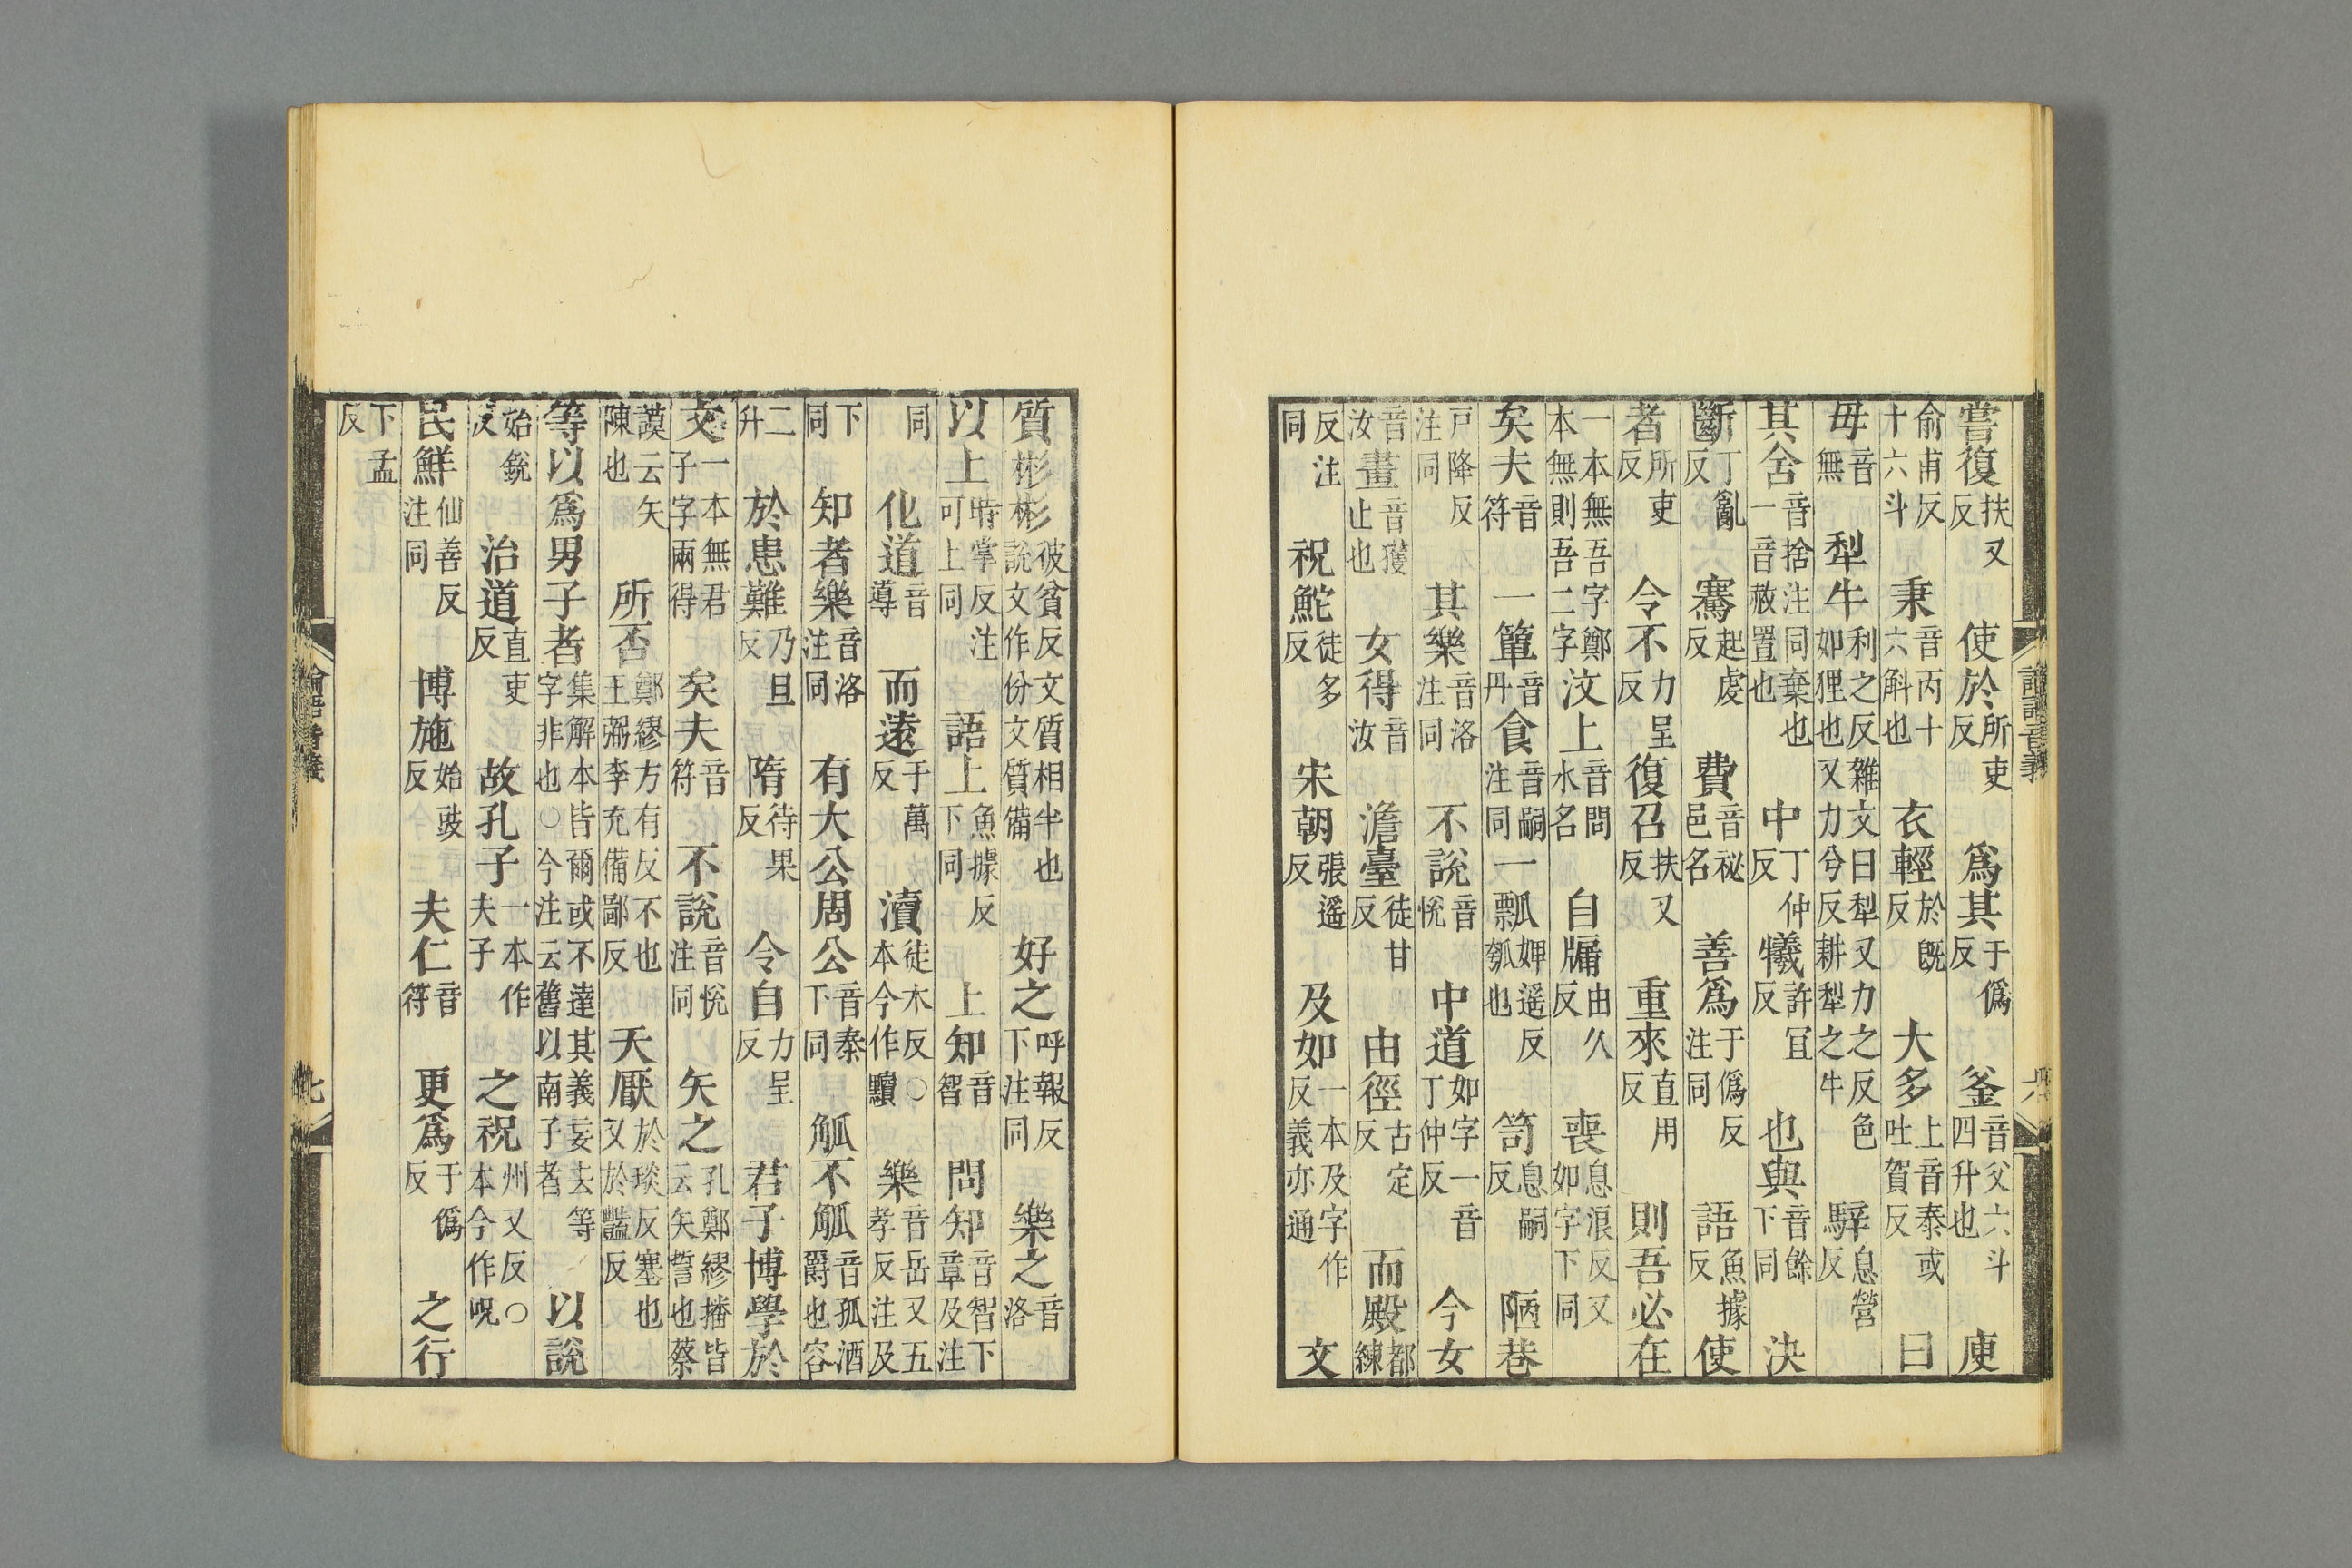 嘗復扶又反 使於所吏反 爲其于僞反 釡音父六斗四升也 庾
俞甫反十六斗 秉音丙十六斛也 衣輕於旣反 大多上音泰或吐賀反 曰
毋音無 犁牛利之反雜文曰犁又力之反色如狸也又力兮反耕犁之牛 騂息營反
其舍音捨注同棄也一音赦置也 中丁仲反 犧許宜反 也與音餘下同 決
斷丁亂反 騫起虔反 費音祕邑名 善爲于僞反注同 語魚據反 使
者所吏反 令不力呈反 復召扶又反 重來直用反 則吾必在
一本無吾字鄭本無則吾二字 汶上音問水名 自牖由久反 喪息浪反又如字下同
矣夫音符 一簞音丹 食音嗣注同 一瓢婢遥反瓠也 笥息嗣反 陋巷
戸降反注同 其樂音洛注同 不說音悅 中道如字一音丁仲反 今女
音汝 畫音獲止也 女得音汝 澹臺徒甘反 由徑古定反 而殿都練
反注同 祝鮀徒多反 宋朝張遥反 及如一本及字作反義亦通 文
論語音義 六
質彬彬彼貧反文質相半也說文作份文質備 好之呼報反下注同 樂之音洛
以上時掌反注可上同 語上魚據反下同 上知音智 問知音智下章及注
同 化道音導 而遠于萬反 瀆徒木反○本今作黷 樂音岳又五孝反注及
下同 知者樂音洛注同 有大公周公音泰下同 觚不觚音孤酒爵也容
二升 於患難乃旦反 隋待果反 令自力呈反 君子博學於
文一本無君子字兩得 矣夫音符 不說音悅注同 矢之孔鄭繆播皆云矢誓也蔡
謨云矢陳也 所否鄭繆方有反不也王弼李充備鄙反 天厭於琰反塞也又於豔反
等以爲男子者集解本皆爾或不達其義妄去等字非也○今注云舊以南子者 以說
始銳反 治道直吏反 故孔子一本作夫子 之祝州又反○本今作呪
民鮮仙善反注同 博施始豉反 夫仁音符 更爲于僞反 之行
下孟反
論語音義 七